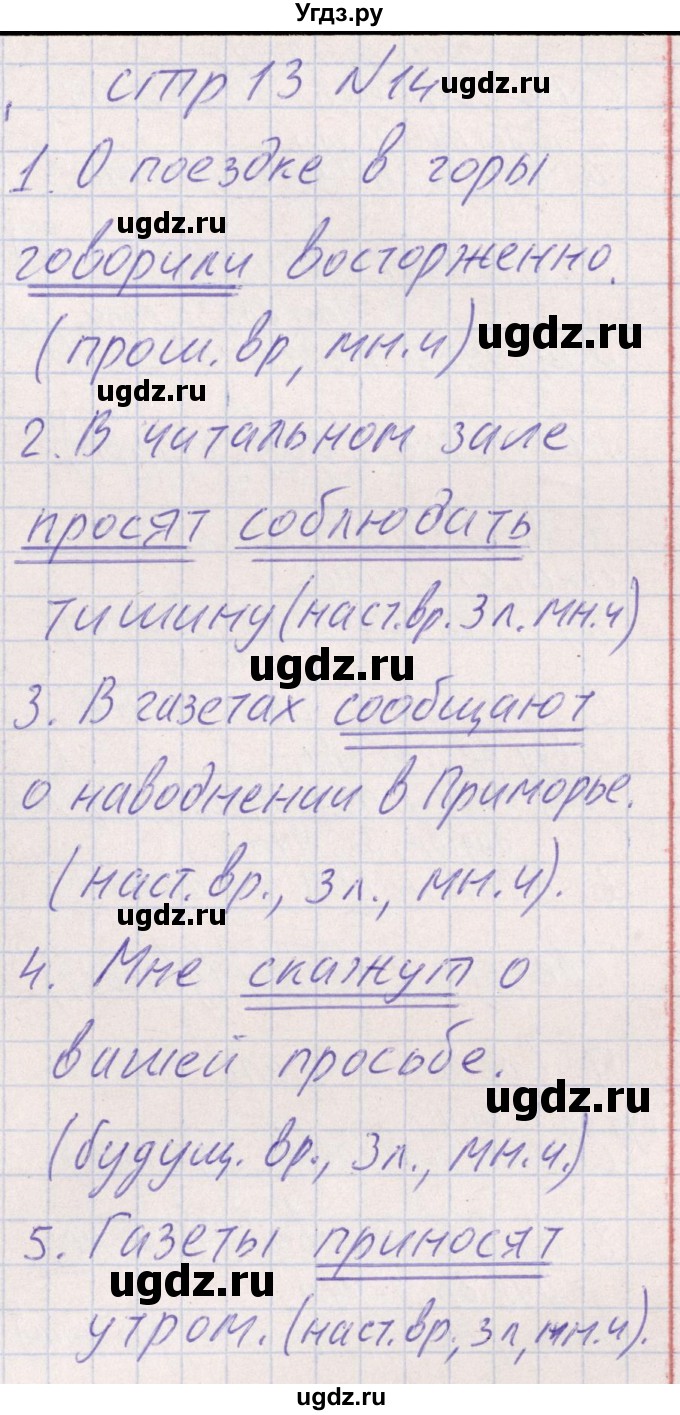 Угдз.ру
стр 13 №14
ugdz.ru
1. О поездке в горы
ugdz.ru
говорили восторженно.
(прош. вр, мн.ч)
ugdz.ru
ugdz.ru
2. В читальном зале
просят соблюдать
тишину (наст.вр. 3л. мн.ч)
ugdz.ru
3. В газетах сообщают
о наводнении в Приморье.
(наст. вр., 3л., мн.ч).
ugdz.ru
4. Мне скажут о
вашей просьбе.
ugdz.ru
(будущ. вр., 3л., мн.ч.)
5. Газеты приносят
ugdz.ru
утром. (наст.вр, 3л, мн.ч).
ugdz.ru